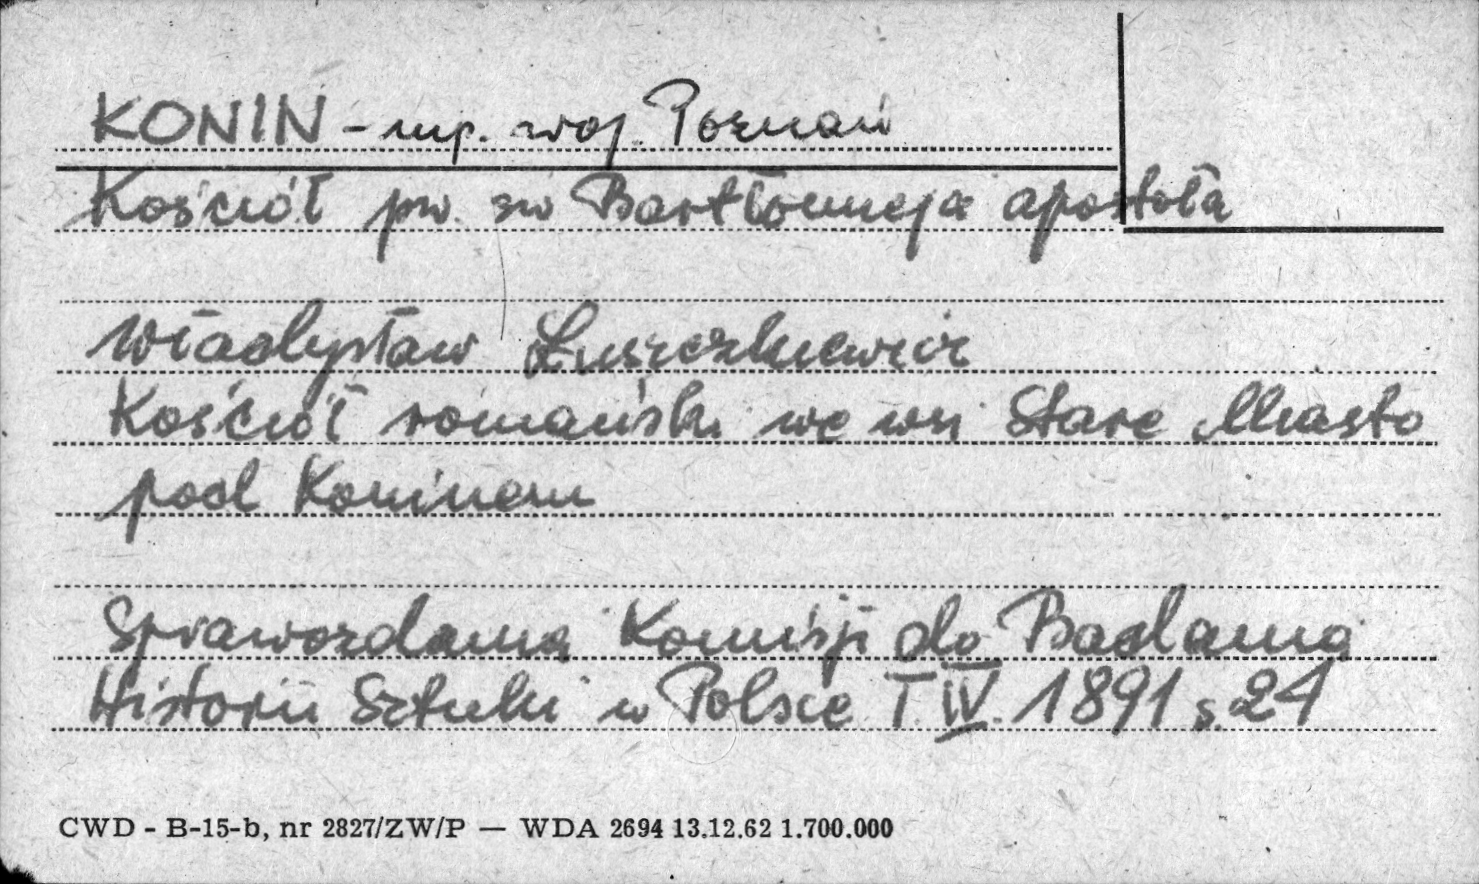 KONIN - mp. woj. Poznań
Kościół pw. św Bartłomieja apostoła
Władysław Łuszczkiewicz
Kościół romański we wsi Stare Miasto
pod Koninem
Sprawozdania Komisji do Badania
Historii Sztuki w Polsce T. IV. 1891 s. 24
CWD - B-15-b, nr 2827/ZW/P — WDA 2694 13.12.62 1.700.000